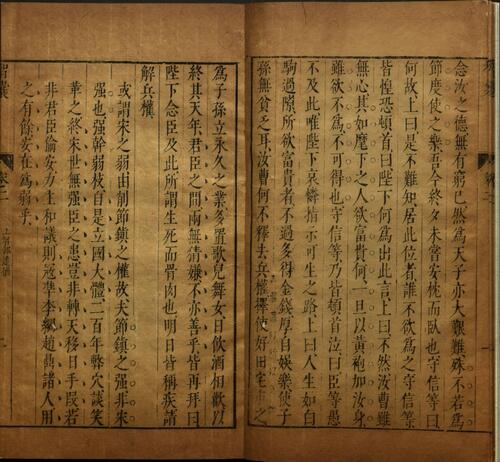 念汝之德無有窮已然為天子亦大艱難殊不若為
節度使之樂吾今終夕未嘗安枕而臥也守信等曰
何故上曰是不難知居此位者誰不欲為之守信等
皆惶恐頓首曰陛下何為出此言上曰不然汝曹雖
無心其如麾下之人欲富貴何一旦以黃袍加汝身
雖欲不為不可得也守信等乃皆頓首泣曰臣等愚
不及此唯陛下哀憐指示可生之路上曰人生如白
駒過隙所欲富貴者不過多得金錢厚自娛樂使子
孫無貧乏耳汝曹何不釋去兵權擇便好田宅市之
為子孫立永久之業多置歌兒舞女日飲酒相歡以
終其天年君臣之間兩無猜嫌不亦善乎皆再拜曰
陛下念臣及此所謂生死而骨肉也明日皆稱疾請
解兵權
或謂宋之弱由削節鎮之權故夫節鎮之强非宋
强也强幹弱枝自是立國大體二百年弊穴談笑
革之終宋世無强臣之患豈非轉天移日手段若
非君臣偷安力主和議則寇準李綱趙鼎諸人用
之有餘安在為弱乎
智囊
卷二